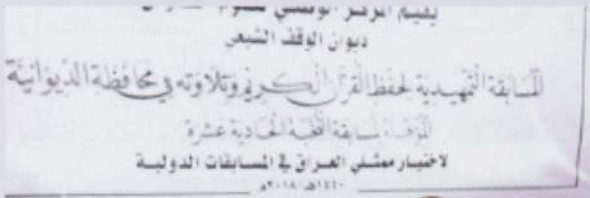 يقيم المركز الوطني لعلوم القرآن
ديوان الوقف الشيعي
المسابقة التمهيدية لحفظ القرآن الكريم وتلاوته في محافظة الديوانية
لمسابقة النخبة الحادية عشرة
لاختيار ممثلي العراق في المسابقات الدولية
١٤٤٠هـ ٢٠١٨م